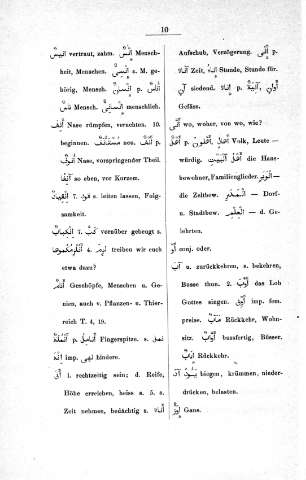 10
vertraut, zahm. أُنْسٌ Mensch-
heit, Menschen. إِنْسِيٌّ s. M. ge-
hörig, Mensch. إِنْسَانٌ p. نَاسٌ
Mensch. menschlich.
أَنْفٌ Nase rümpfen, verachten. 10.
beginnen. مستأنف non. أَنْفٌ p.
Nase, vorspringender Theil.
آنِفًا so eben, vor Kurzem.
7. قود s. leiten lassen, Folg-
samkeit.
7. كبّ vornüber gebeugt s.
4. treiben wir euch
etwa dazu?
أَنَامٌ Geschöpfe, Menschen u. Ge-
nien, auch v. Pflanzen- u. Thier-
reich T. 4, 19.
p. أَنَامِلُ Fingerspitze. s.
imp. نهى hindere.
أَنَى i. rechtzeitig sein; d. Reife,
Höhe erreichen, heiss s. 5. s.
Zeit nehmen, bedächtig s.
Aufschub, Verzögerung. p.
Zeit, Stunde, Stunde für.
آنٍ siedend. إِنَاءٌ p. آنِيَةٌ, أَوَانٍ
Gefäss.
أَنَّى wo, woher, von wo, wie?
أَهْلٌ p. أَهْلُونَ. Volk, Leute —
würdig. أَهْلُ الْبَيْتِ die Haus-
bewohner, Familienglieder.
die Zeltbew. — Dorf-
u. Stadtbew. — d. Ge-
lehrten.
أَوْ conj. oder.
آبَ u. zurückkehren, s. bekehren,
Busse thun. 2. das Lob
Gottes singen. imp. fem.
preise. مَآبٌ Rückkehr, Wohn-
sitz. أَوَّابٌ bussfertig, Büsser.
إِيَابٌ Rückkehr.
آدَ u. biegen, krümmen, nieder-
drücken, belasten.
إِوَزٌّ Gans.